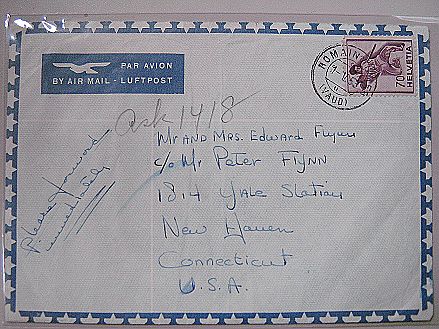 PAR AVION
BY AIR MAIL - LUFTPOST
(VAUD)
70
HELVETIA
ask 1418
Mr AND Mrs. Edward Flynn
c/o Mr Peter Flynn
1814 Yale Station
New Haven
Connecticut
U.S.A.
Please forward
immediately